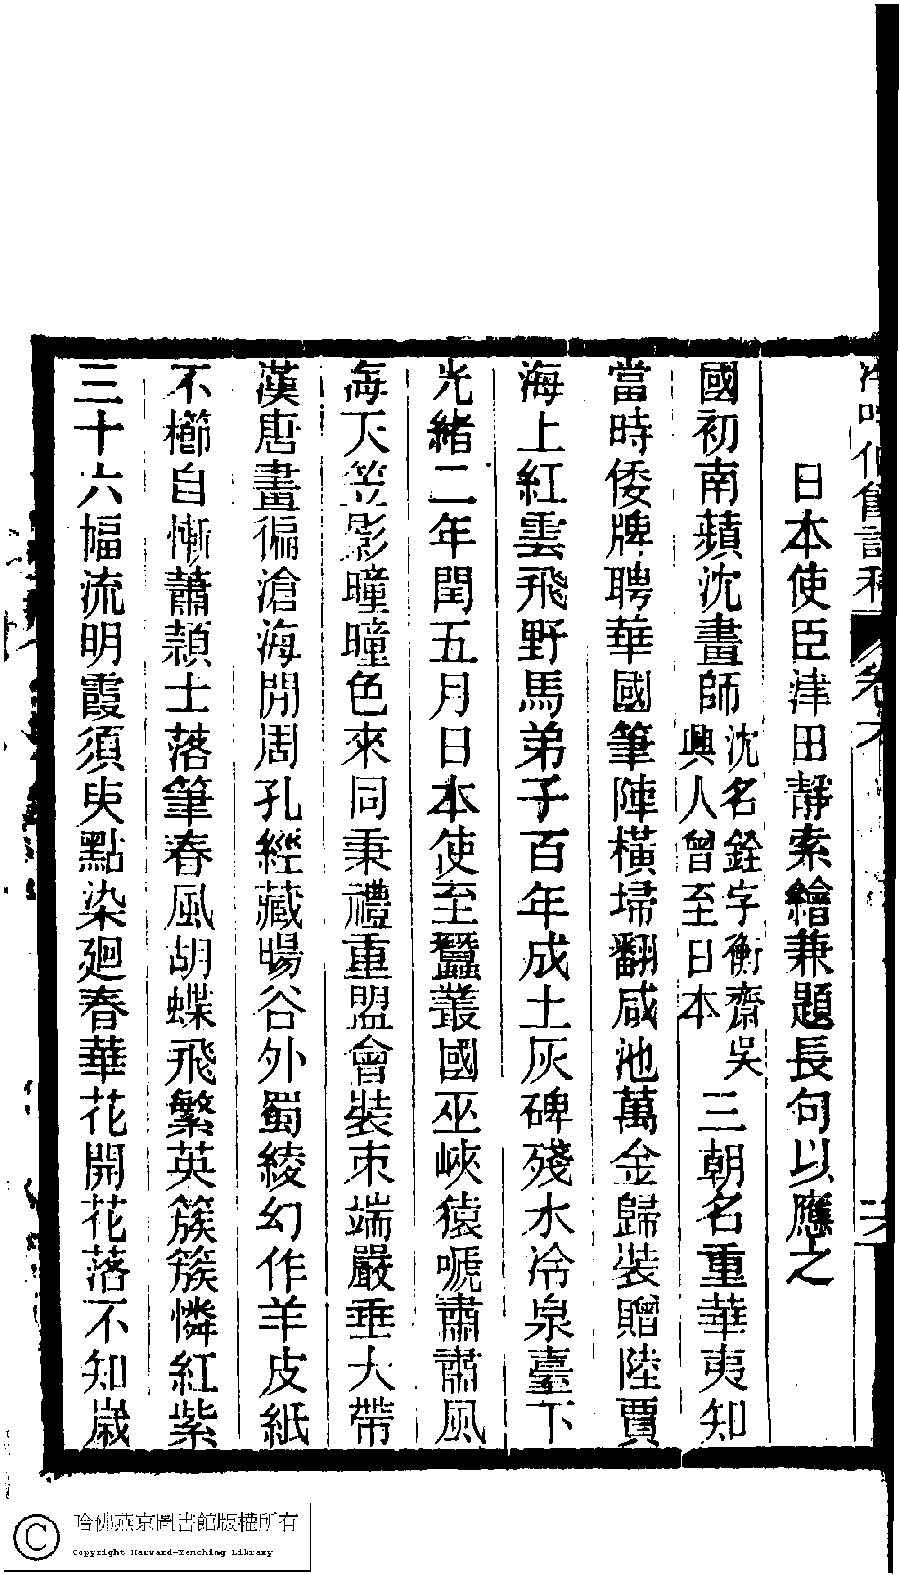 日本使臣津田靜索繪兼題長句以應之
國初南蘋沈畫師沈名銓字衡齋吳興人曾至日本三朝名重華夷知
當時倭牌聘華國筆陣橫埽翻咸池萬金歸裝贈陸賈
海上紅雲飛野馬弟子百年成土灰碑殘水冷泉臺下
光緒二年閏五月日本使至蠶叢國巫峽猿嗁肅肅風
海天笠影曈曈色來同秉禮重盟會裝束端嚴垂大帶
漢唐畫徧滄海閒周孔經藏暘谷外蜀綾幻作羊皮紙
不櫛自慚蕭穎士落筆春風胡蝶飛繁英簇簇憐紅紫
三十六幅流明霞須臾點染廻春華花開花落不知歲
六
哈佛燕京圖書館版權所有
Copyright Harvard-Yenching Library